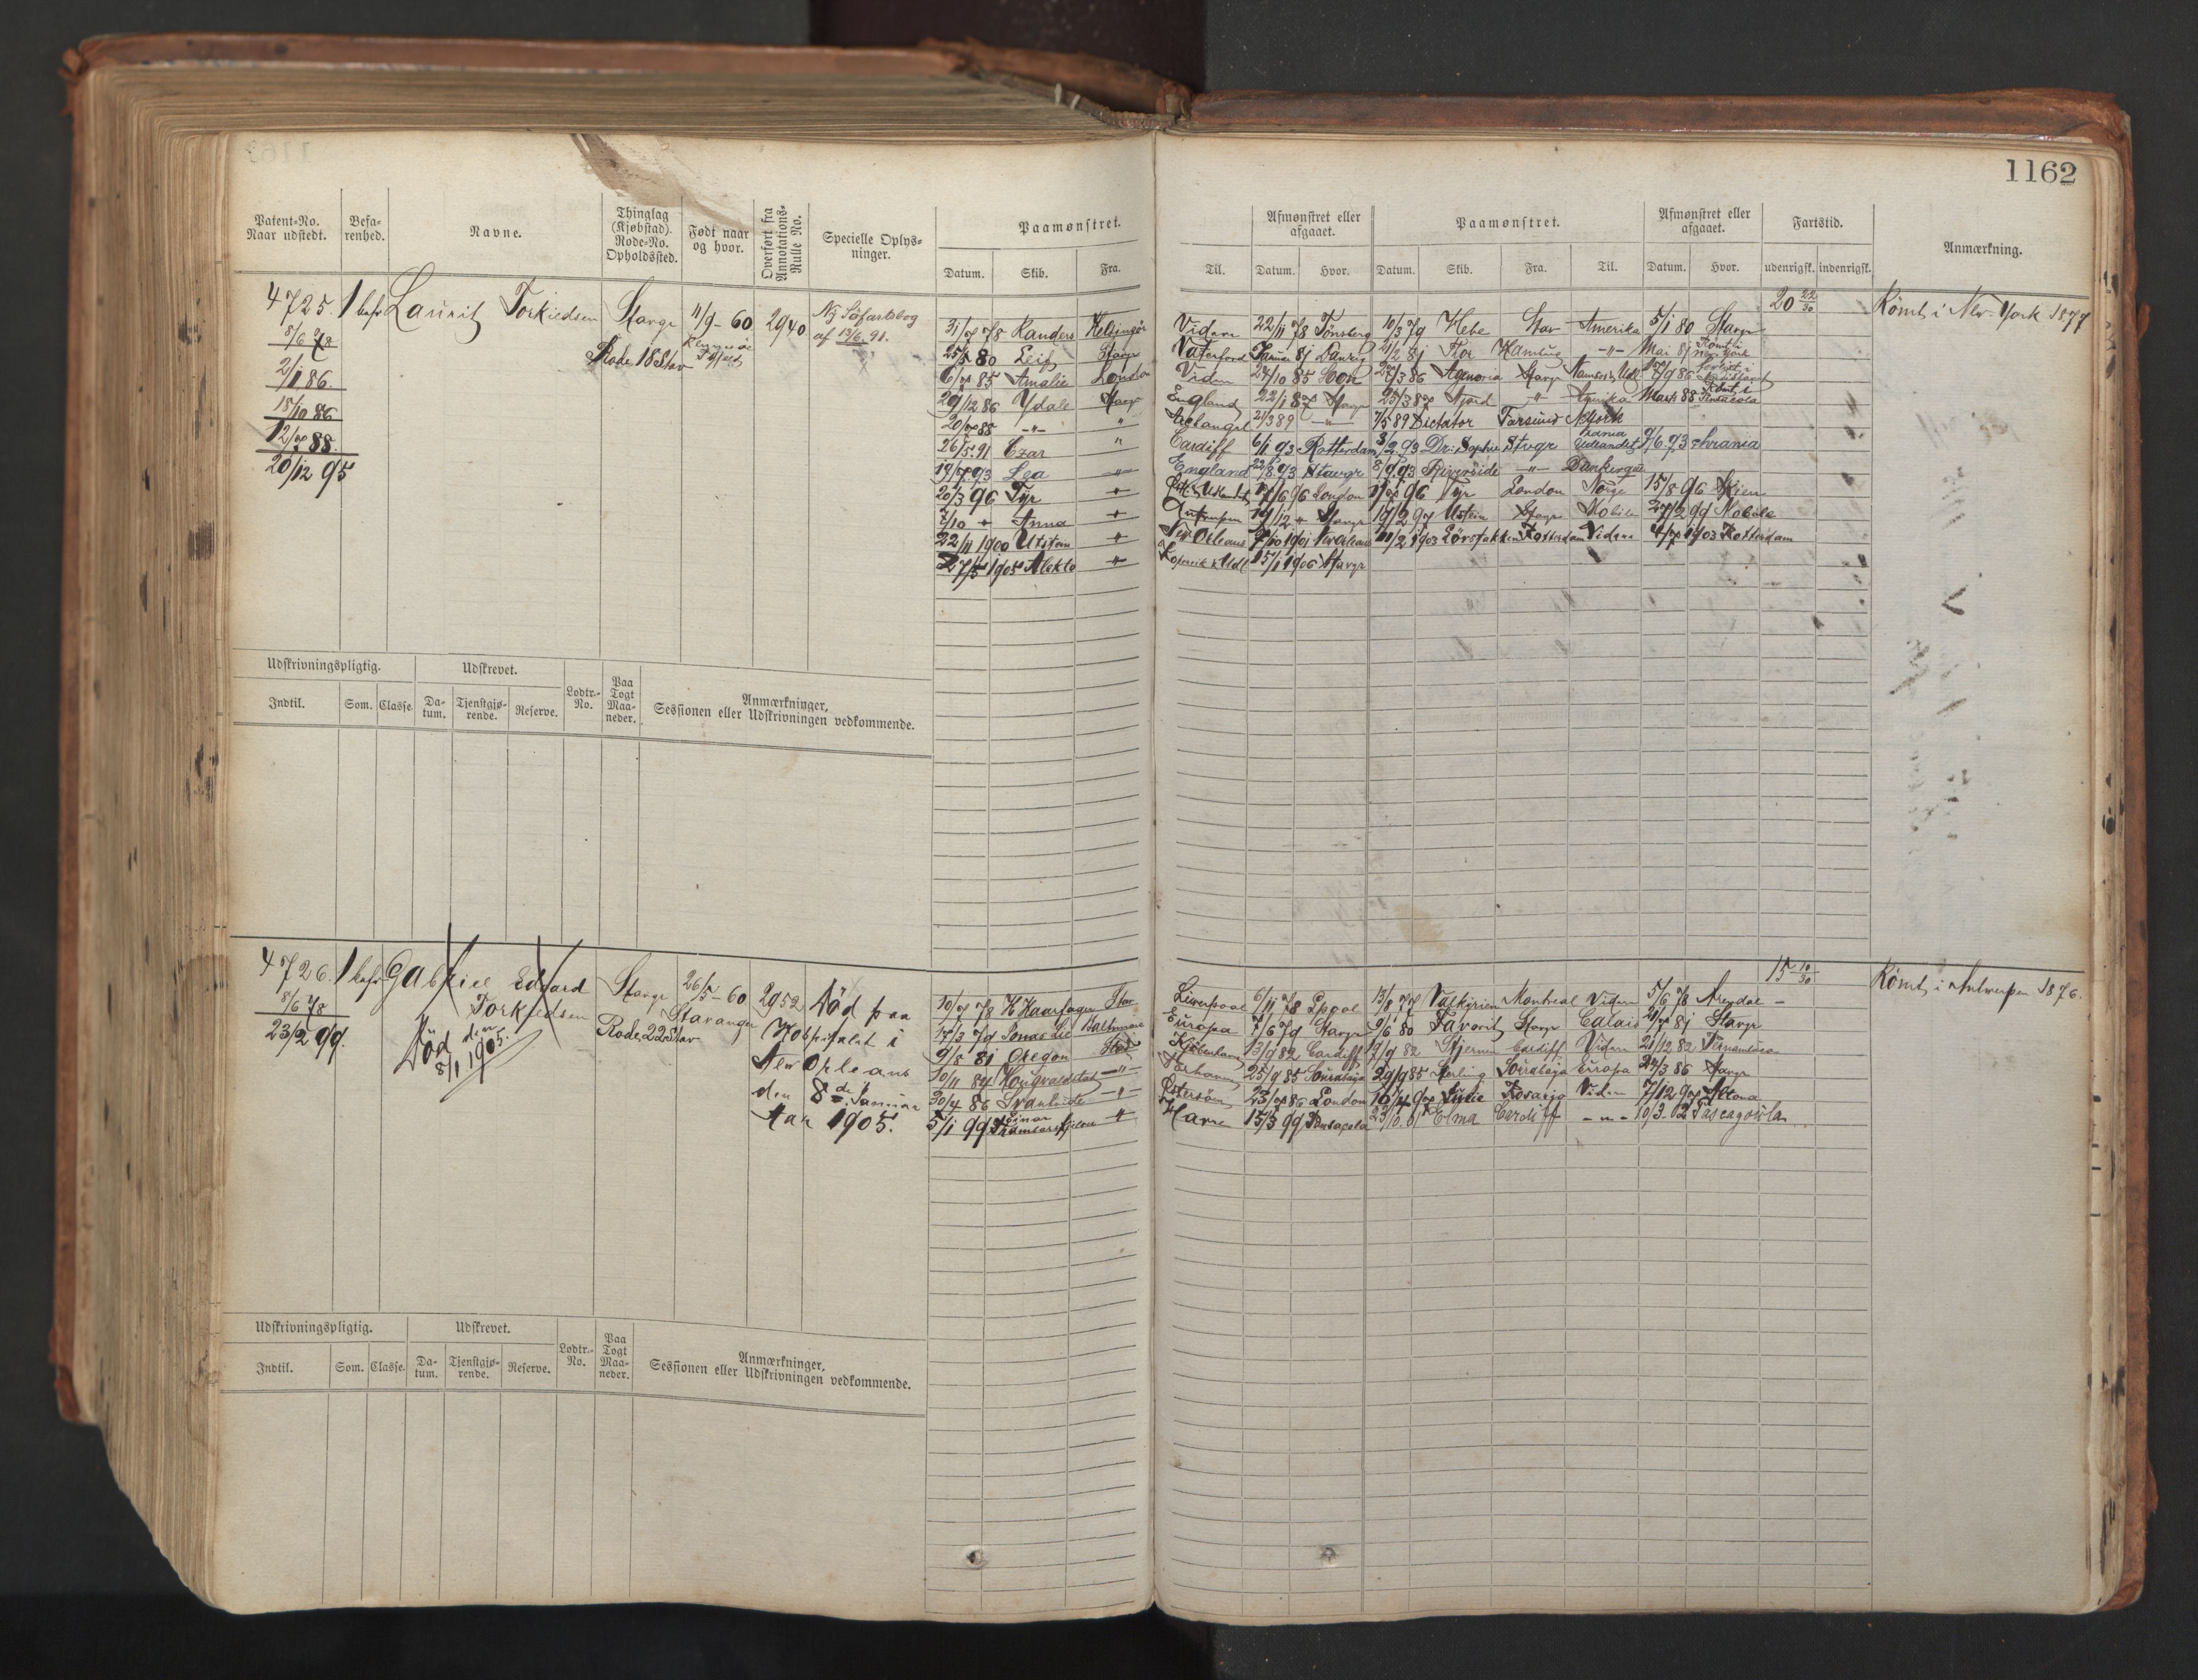 1162
Patent-No. Naar udstedt.
Befarenhed.
Navne.
Thinglag (Kjøbstad). Rode-No. Opholdssted.
Født naar og hvor.
Overført fra Annotations-Rulle No.
Specielle Oplysninger.
Paamønstret.
Datum. Skib. Fra. Til.
Afmønstret eller afgaaet.
Datum. Hvor.
Paamønstret.
Datum. Skib. Fra. Til.
Afmønstret eller afgaaet.
Datum. Hvor.
Fartstid.
udenrigsk. indenrigsk.
Anmærkning.
4725. 1 bef Laurits Torkildsen Stavgr 11/9-60 2940 Ny Söfartsbog
af 13/6 91.
8/6 78
Rode 18 Stav
2/1 86.
18/10 86
12/7 88.
20/12 95
20 22/30 Römt i New-York 1877
31/7 78 Randers Helsingör Videre 22/11 78 Tönsberg 10/3 79 Hebe Stav Amerika 5/1 80 Stavgr
80 Leif Stavgr Vaterford Januar 81 Danzig 2/2 81 Thor Hamburg -"- Mai 81 Römt i New York
6/7 85 Amalie London Viden 24/10 85 86 Agnoria Stavgr
29/12 86 Ydale Stavgr England 22/1 87 Stavgr 25/3 87 Fjord " Amerika Marts 88 Römt i Pensacola
20/7 88 -"- " Archangel 21/3 89 -"- 7/5 89 Dictator Farsund NYork
26/5 91 Czar " Cardiff 6/1 93 Rotterdam 3/2 93 Dr: Sophie Stvgr Udlandet 9/6. 93 Chrania
19/7. 93 Lea -"- England 22/8 93 Stavgr 8/9 93 Riverside -"- Dünkerque
20/3 96 Tyr + 17/6 96 London 96 Tyr London Norge 15/8 96 Skien
2/10 + Anna + Antwerpen 19/12 " Stavgr 19/2 97 Utstein Stavgr Mobile 27/2 99 Mobile
22/11 1900 Utstein + New Orleans 7/10 1901 New Orleans 11/2 1903 Lörsfakken Rotterdam Videre 4/7 1903 Rotterdam
27/5 1905 Alekto " Kopervik & Udl 15/1 1906 Stavgr
Udskrivningspligtig.
Udskrevet.
Lodtr.-No.
Paa Togt Maaneder.
Anmærkninger, Sessionen eller Udskrivningen vedkommende.
Indtil. Som. Classe. Datum. Tjenstgjørende. Reserve.
4726. 1 bef Gabriel Edvard Torkildsen Stavgr 26/5-60 Stavanger 2952 Död paa
8/6 78
Rode 22 Stav
Hospitalet i
23/2 99.
Död den
8/1 1905.
New Orleans
den 8de Januar
Aar 1905.
15 10/30 Römt i Antwerpen 1876.
10/7 78 H Haarfager Stav Liverpool 6/11 78 Lpool 13/8 77 Valkyrien Montreal Videre 5/6 78 Arendal -
17/3 79 Jonas Lie Baltimore Europa 7/6 79 Stavgr 9/6 80 Favorit Stavgr Calais 81 Stavgr
9/8 81 Oregon Stav Kjöbenhavn 13/9 82 Cardiff 19/9 82 Stjernen Cardiff Videre 21/12 82 Pernambuco
10/11 84 Kongvoldstad -"- 25/9 85 Sourabaja 29/9 85 Sterling Sourabaja Europa 24/3 86 Stavgr
30/4 86 Svanhilde -"- Östersöen 23/7 86 London 10/4 97 Lydie Rosario Viden 7/12 97 Altona
5/1 99 + Havre 15/3 99 Pensacola 23/10. 01 Elma Cardiff -"- 10/3. 02 Pascagoula
Udskrivningspligtig.
Udskrevet.
Lodtr.-No.
Paa Togt Maaneder.
Anmærkninger, Sessionen eller Udskrivningen vedkommende.
Indtil. Som. Classe. Datum. Tjenstgjørende. Reserve.